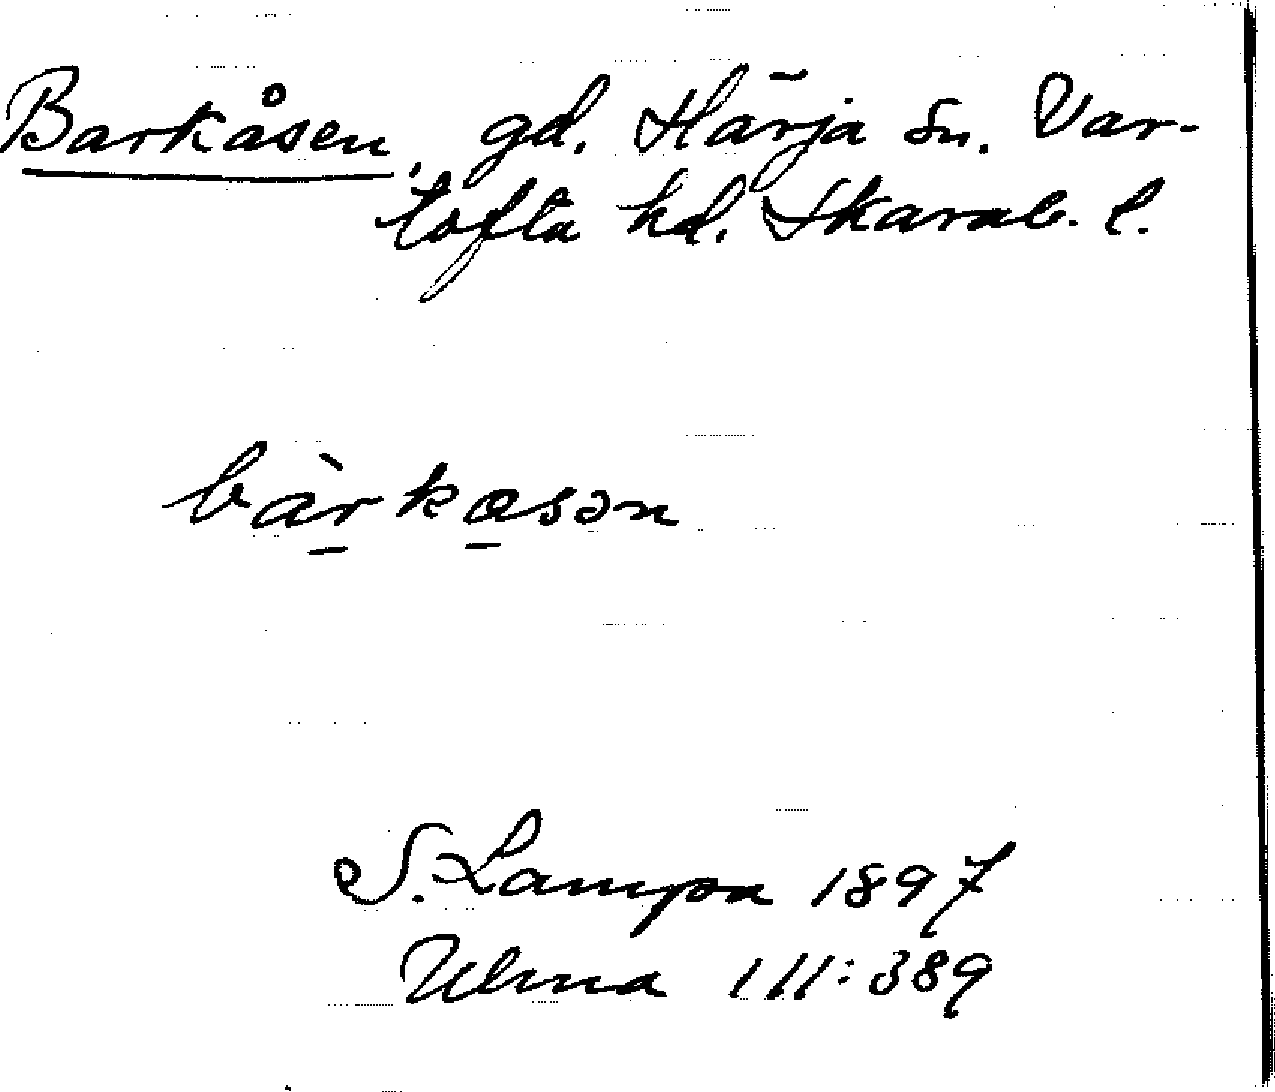 Barkåsen, gd. Härja sn. Var-
tofta hd. Skarab. l.
bàrkasən
S. Lampa 1897
Ulma 111:389